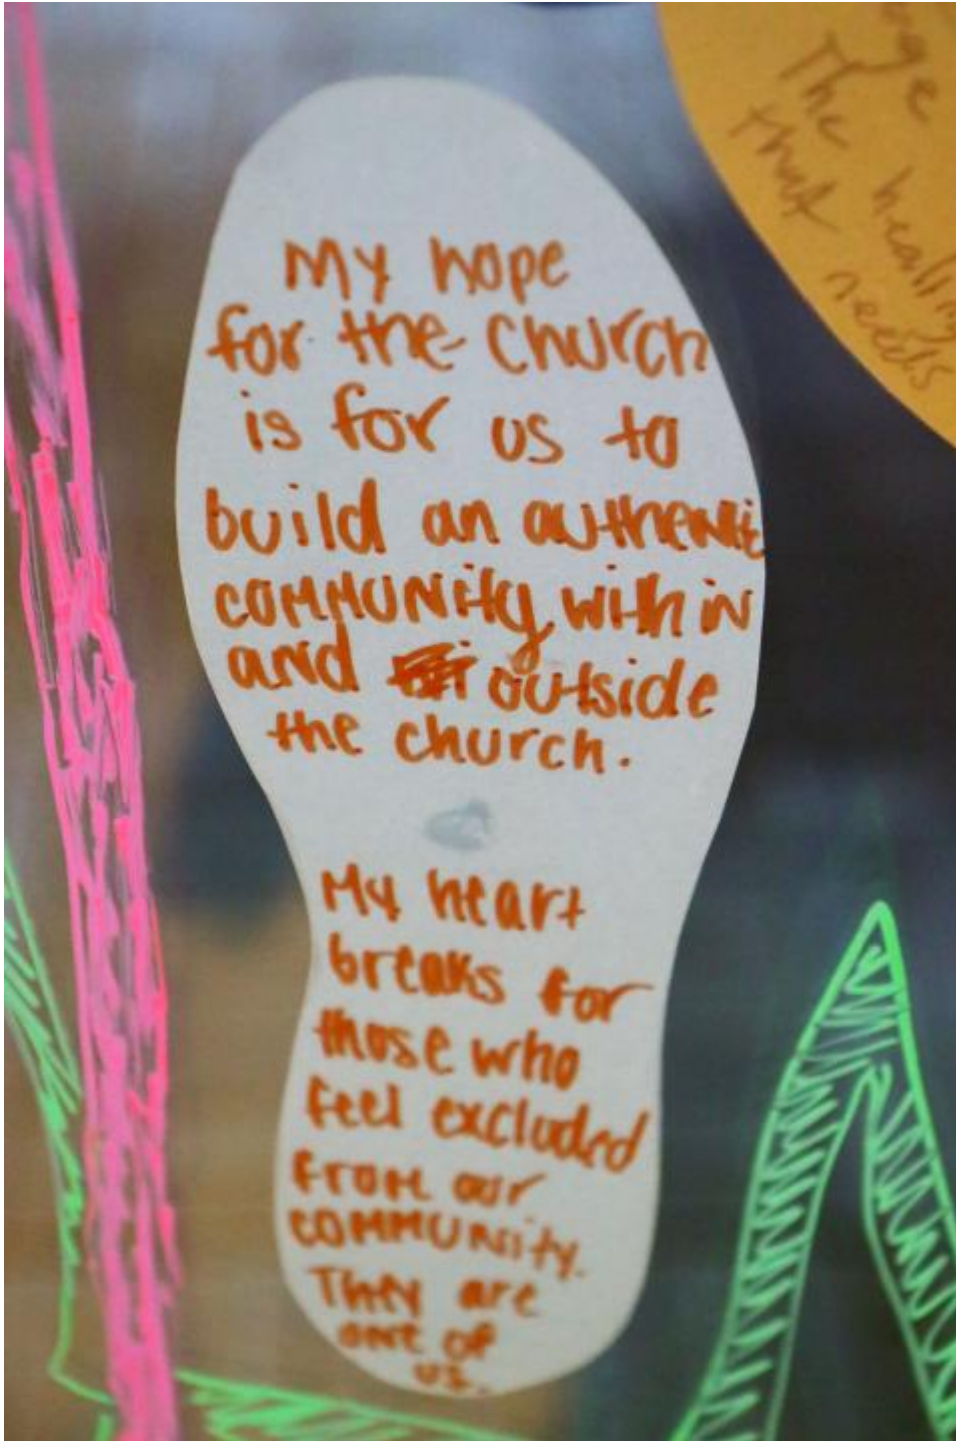 My hope
for the Church
is for us to
build an authentic
community within
and outside
the church.
My heart
breaks for
those who
feel excluded
from our
community.
They are
one of
us.
The healing
that needs